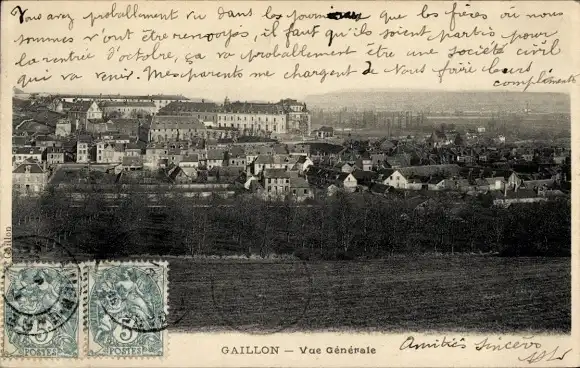 Vous avez probablement vu dans les journaux que les frères où nous
sommes vont être renvoyés, il faut qu'ils soient partis pour
la rentrée d'octobre, ça va probablement être une société civil
qui va venir. Mes parents me chargent de vous faire leurs
compliments
Gaillon
5 POSTES 5
5 POSTES 5
GAILLON — Vue Générale
Amitiés sincères